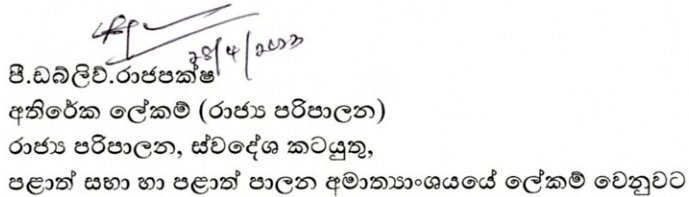 28/4/2023
පී.ඩබ්ලිව්.රාජපක්ෂ
අතිරේක ලේකම් (රාජ්‍ය පරිපාලන)
රාජ්‍ය පරිපාලන, ස්වදේශ කටයුතු,
පළාත් සභා හා පළාත් පාලන අමාත්‍යාංශයයේ ලේකම් වෙනුවට